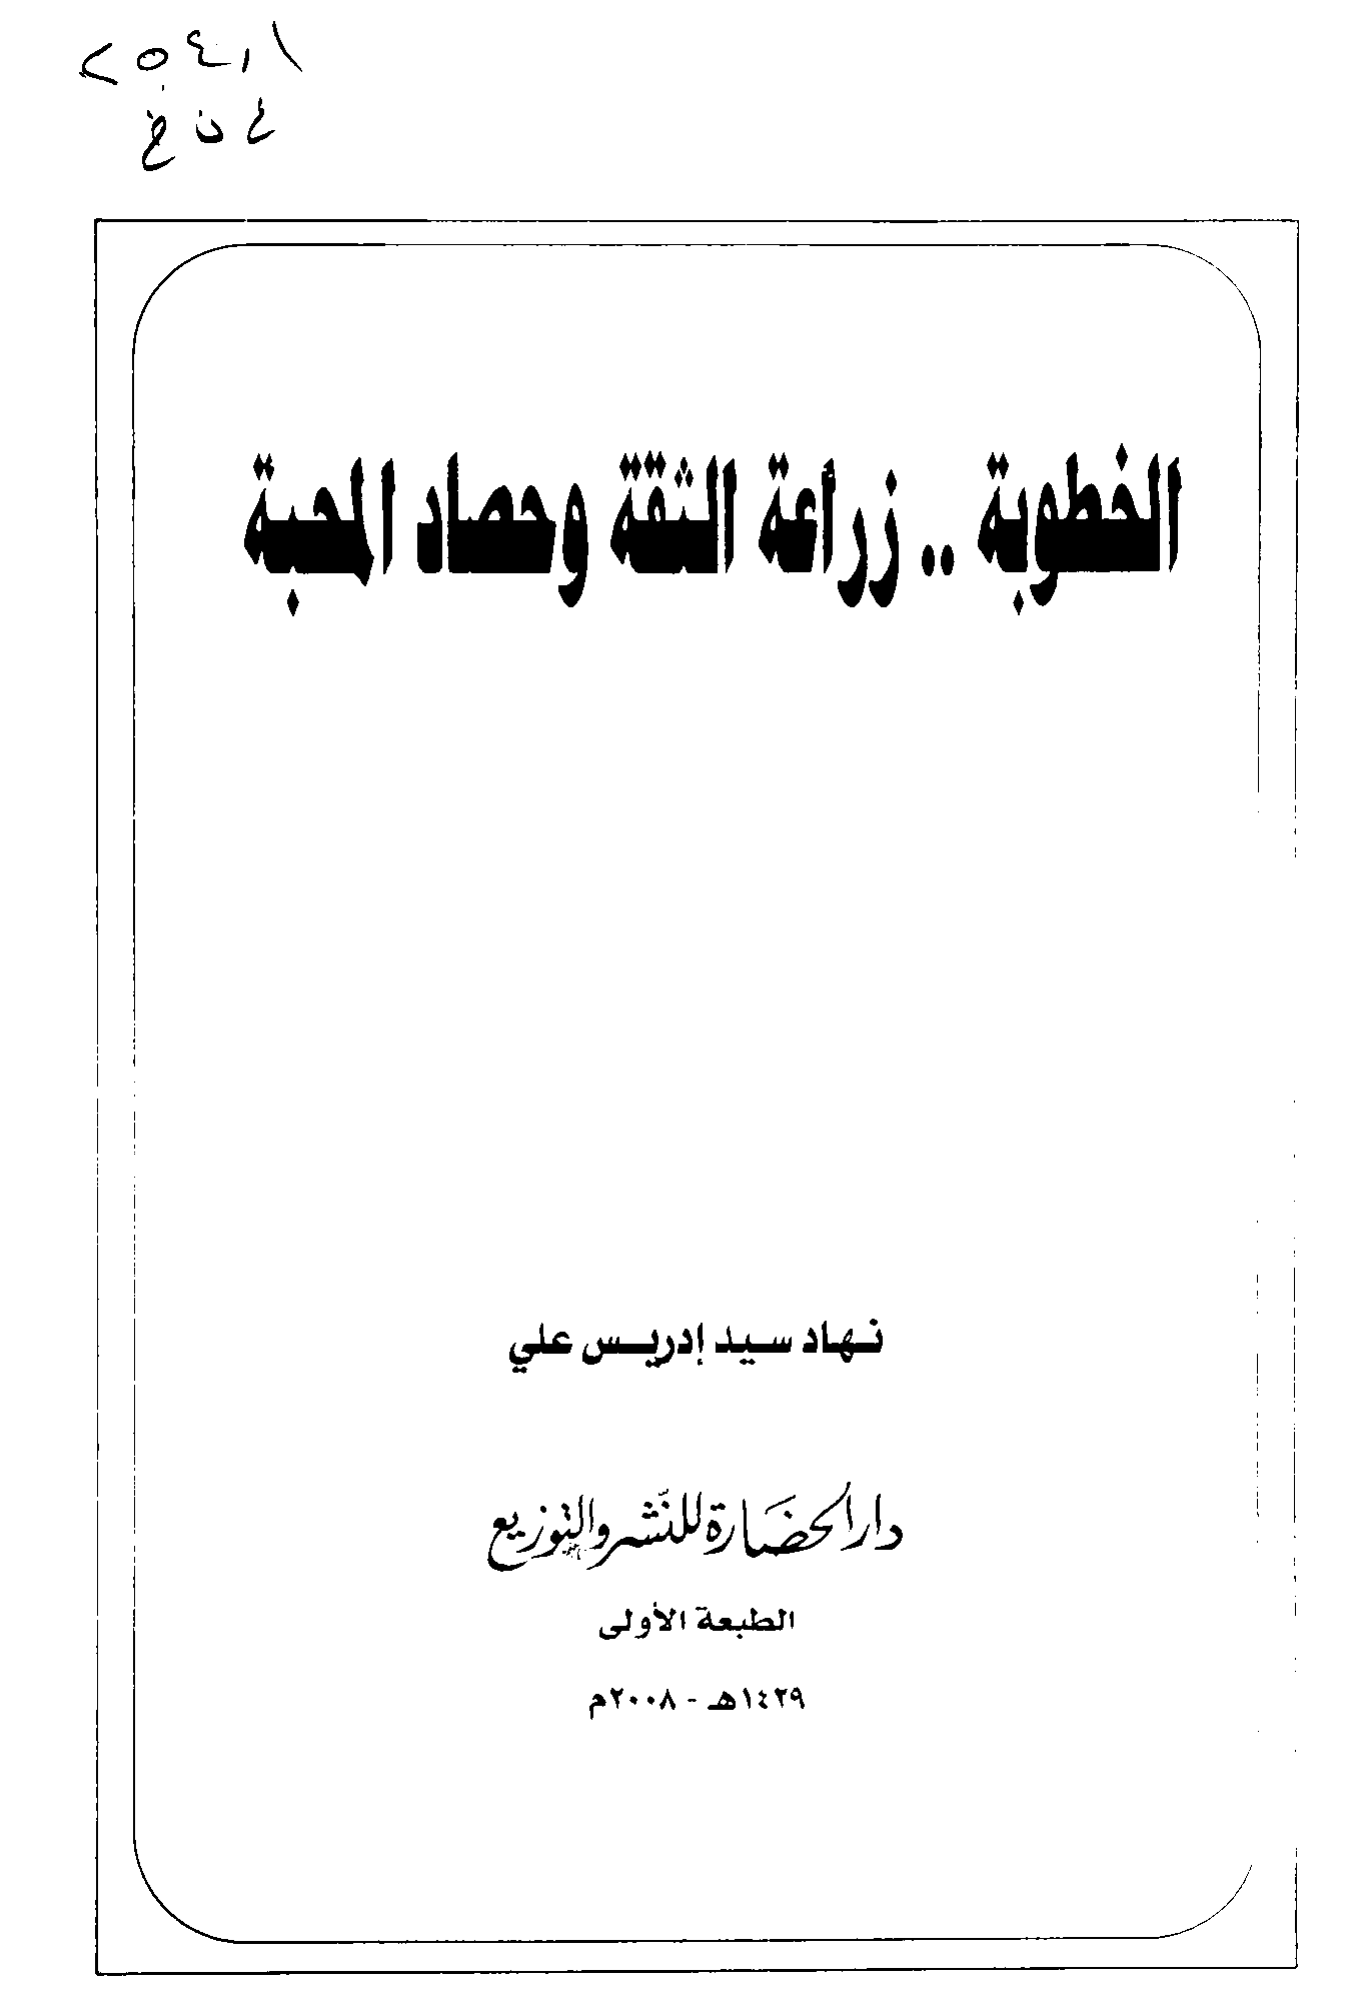 ٢٥٤,١
ع ن خ
الخطوبة .. زراعة الثقة وحصاد المحبة
نهاد سيد إدريس علي
دار الحضارة للنشر والتوزيع
الطبعة الأولى
١٤٢٩هـ - ٢٠٠٨م